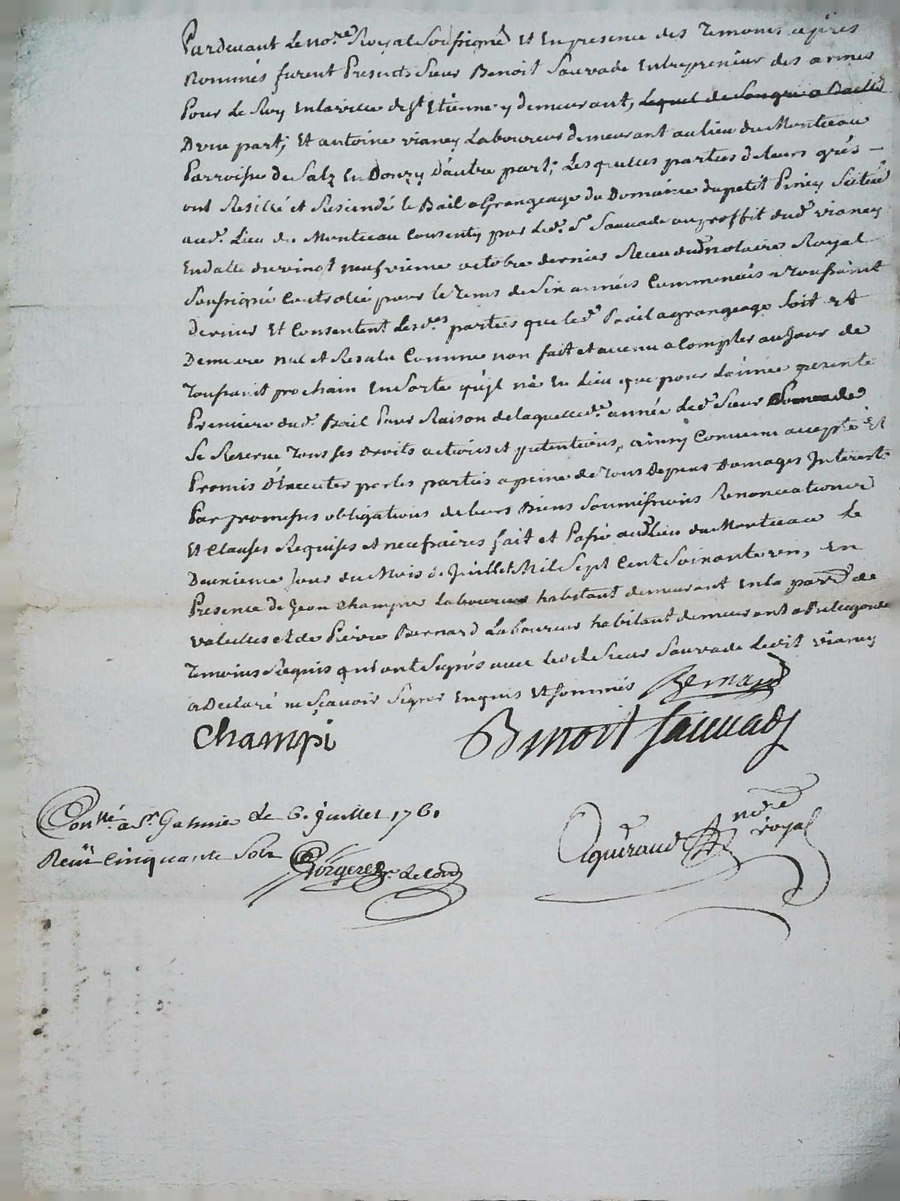 Pardevant Le no.re Royal Soussigné et En presence des Temoins après
Nommés furent Presents Sieur Benoit Sauvade Entrepreneur des armes
Pour Le Roy En la ville de St Etienne y demeurant, Lequel de
Dune part; Et antoine vianey Laboureur demeurant au lieu du Monteau
Parroisse de Salz En Donzy d'autre part; Lesquelles parties de leurs grés –
ont Resillié et Rescindé le Bail a Grangeage du Domaine du petit Piney Scitué
aud. Lieu du Monteau Consenty par Led. Sr. Sauvade au proffit dud. vianey
En datte du vingt neufvieme octobre dernier Receu dud notaire Royal
Soussigné Controlé pour le Tems de Six années Commencées a Toussaint
Dernier Et Consentent Lesd.es parties que led. Bail a grangeage Soit Et
Demeure Nul et Resolu Comme non fait et avenu a Compter au Jour de
Toussaint prochain En Sorte qu'jl n'a En Lieu que pour L'année presente
Premiere dud. Bail Pour Raison de laquelle d. année Led. Sieur Sauvade
Se Reserve Tous ses Droits actions et pretentions, ainsy Convenu accepté Et
Promis D'Executer par les parties a peine de Tous Depens Domages Interests
Par promesses obligations de leurs Biens Soumissions Renonciations
Et Clauses Requises et necessaires fait et Passé aud Lieu du Monteau Le
Deuxieme Jour du Mois de Juillet Mil Sept Cent Soixante un, en
Presence de Jean Champie Laboureur habitant demeurant En la par. de
et de Pierre Bernard Laboureur habitant demeurant a
Temoins Requis qui ont Signés avec Led Sieur Sauvade Ledit vianey
a Declaré ne Sçavoir Signer Enquis Et Sommés Bernard
Champi Benoit Sauvade
Con.llé a St. Galmier Le 6. Juillet 1761
Receu Cinquante Sols
nore
royal